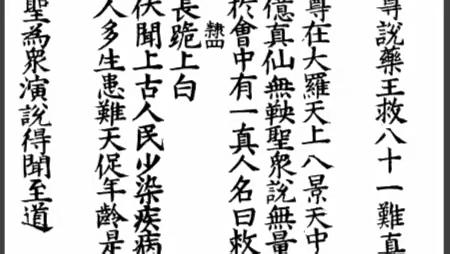 尊說藥王救八十一難真
尊在大羅天上八景天中
億真仙無鞅聖眾說無量
扵會中有一真人名曰救
長跪上白
伏聞上古人民少染疾病
人多生患難夭促年齡是
聖為眾演說得聞至道